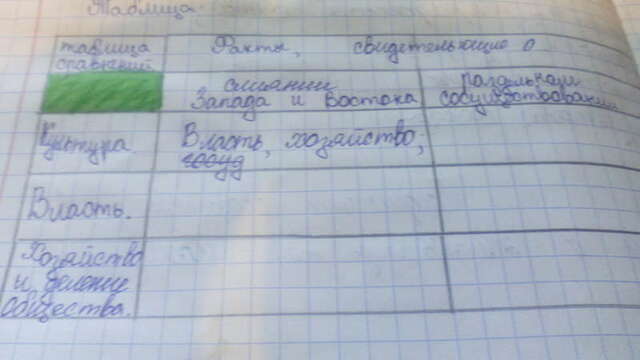 Таблица
таблица
сравнений
Факты, свидетельющие о
слиянии
Запада и Востока
раздельном
сосуществовании
Культура
Власть, хозяйство,
госуд
Власть.
Хозяйство
и деление
общества.